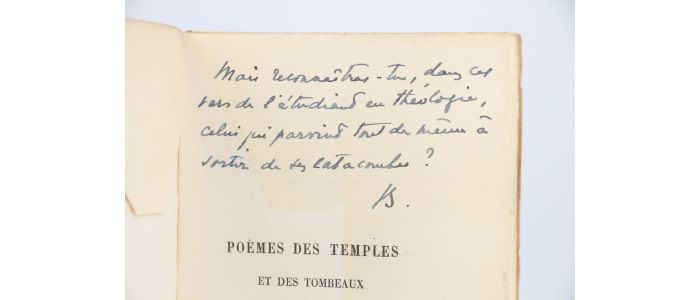 Mais reconnaîtras-tu, dans ces
vers de l'étudiant en théologie,
celui qui parvint tout de même à
sortir de ses catacombes ?
JB.
POÈMES DES TEMPLES
ET DES TOMBEAUX